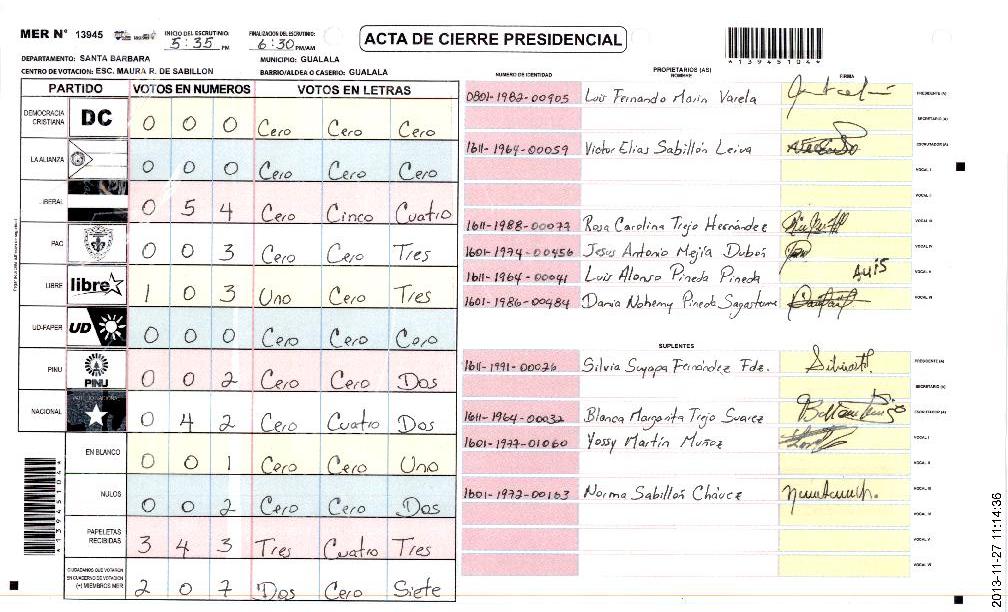 MER N° 13945
INICIO DEL ESCRUTINIO: 5:35 PM
FINALIZACION DEL ESCRUTINIO: 6:30 PM/AM
ACTA DE CIERRE PRESIDENCIAL
A13945104A
DEPARTAMENTO: SANTA BARBARA
MUNICIPIO: GUALALA
CENTRO DE VOTACION: ESC. MAURA R. DE SABILLON
BARRIO/ALDEA O CASERIO: GUALALA
PARTIDO VOTOS EN NUMEROS VOTOS EN LETRAS
DEMOCRACIA CRISTIANA DC 0 0 0 Cero Cero Cero
LA ALIANZA 0 0 0 Cero Cero Cero
LIBERAL 0 5 4 Cero Cinco Cuatro
PAC 0 0 3 Cero Cero Tres
LIBRE libre 1 0 3 Uno Cero Tres
UD-FAPER UD 0 0 0 Cero Cero Cero
PINU PINU 0 0 2 Cero Cero Dos
NACIONAL 0 4 2 Cero Cuatro Dos
EN BLANCO 0 0 1 Cero Cero Uno
NULOS 0 0 2 Cero Cero Dos
PAPELETAS RECIBIDAS 3 4 3 Tres Cuatro Tres
CIUDADANOS QUE VOTARON EN CUADERNO DE VOTACION (+) MIEMBROS MER 2 0 7 Dos Cero Siete
NUMERO DE IDENTIDAD PROPIETARIOS (AS) NOMBRE FIRMA
0801-1982-00905 Luis Fernando Marin Varela PRESIDENTE (A)
SECRETARIO (A)
1611-1964-00059 Victor Elias Sabillón Leiva ESCRUTADOR (A)
VOCAL I
VOCAL II
1611-1988-00077 Rosa Carolina Trejo Hernández VOCAL III
1601-1974-00456 Jesus Antonio Mejía Dubón VOCAL IV
1611-1964-00041 Luis Alonso Pineda Pineda Luis VOCAL V
1601-1986-00484 Dania Noheny Pineda Sagastume VOCAL VI
SUPLENTES
1611-1991-00026 Silvia Suyapa Fernández Fdz. PRESIDENTE (A)
SECRETARIO (A)
1611-1964-00032 Blanca Margarita Trejo Suarez ESCRUTADOR (A)
1601-1977-01060 Yossy Martín Muñoz VOCAL I
VOCAL II
1601-1972-00163 Norma Sabillón Cháuez VOCAL III
VOCAL IV
VOCAL V
VOCAL VI
A13945104A
2013-11-27 11:14:36